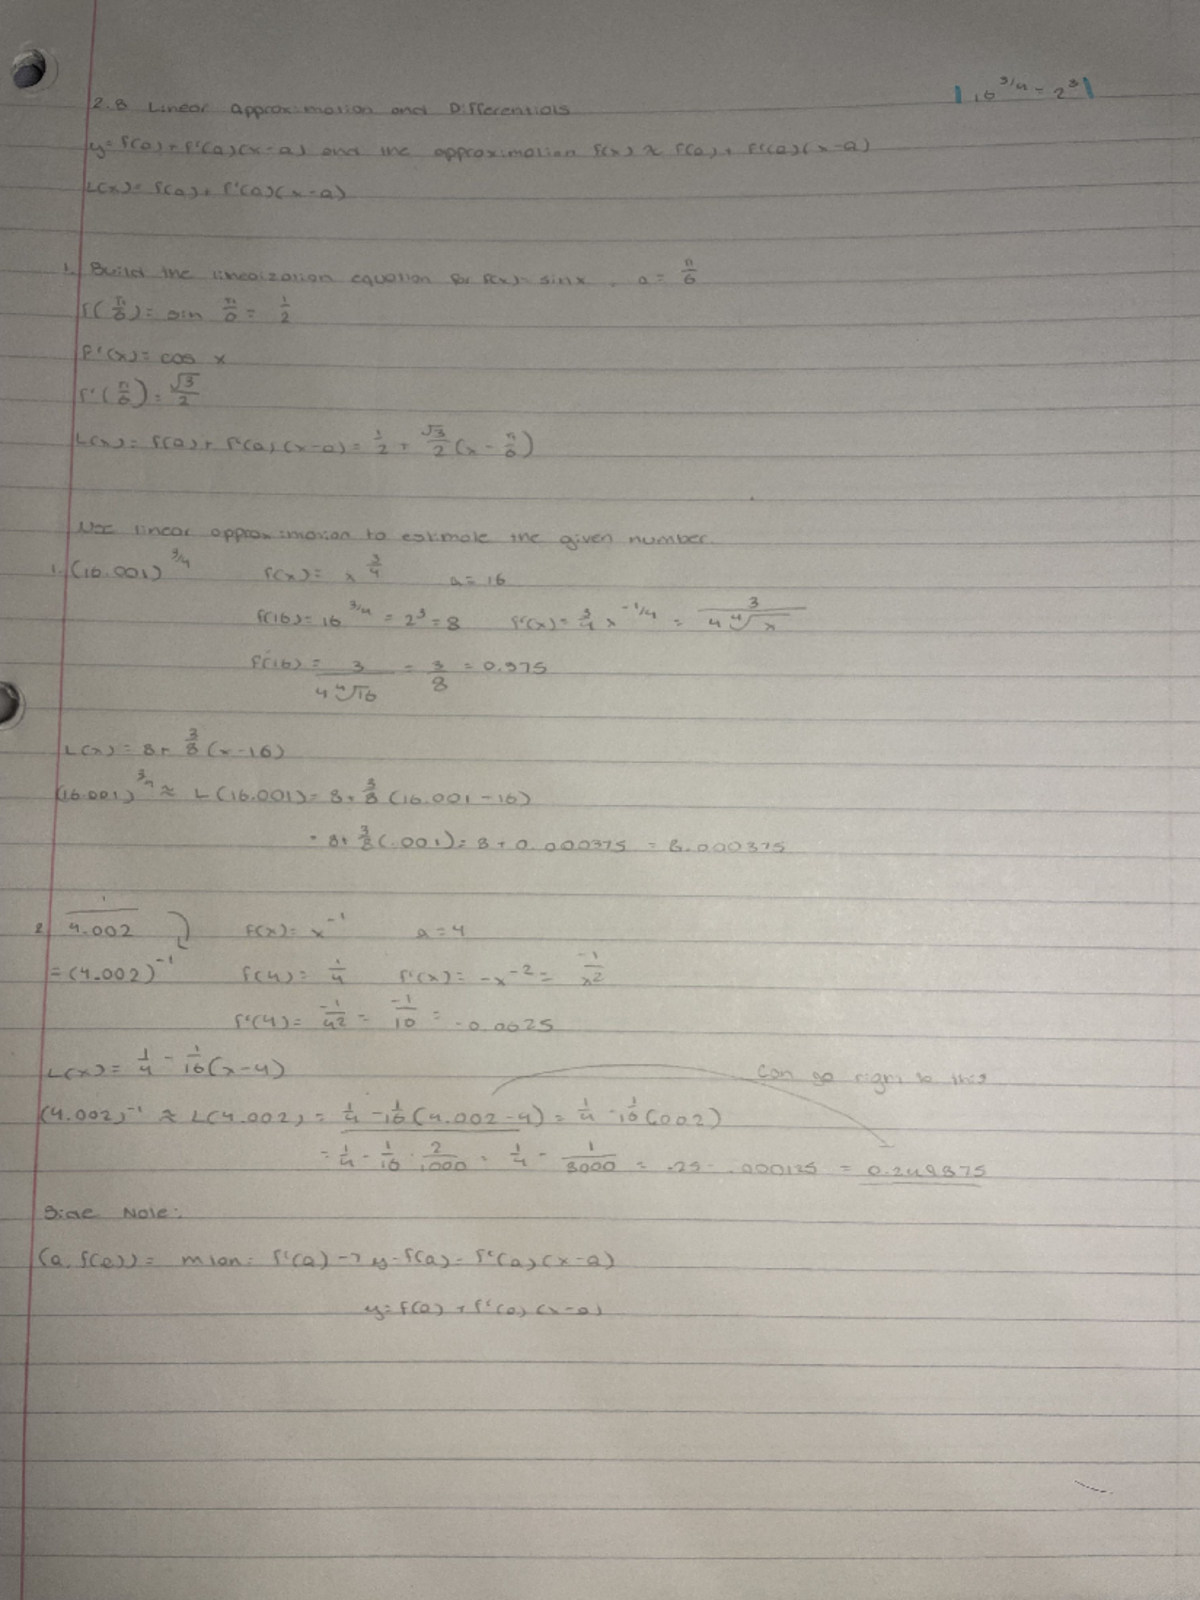 |16^3/4 = 2^3|
2.8 Linear Approximation and Differentials
y= f(a)+f'(a)(x-a) and the approximation f(x) ≈ f(a)+ f'(a)(x-a)
L(x)= f(a)+ f'(a)(x-a)
1. Build the linearization equation for f(x)= sinx, a= π/6
f(π/6)= sin π/6 = 1/2
f'(x)= cos x
f'(π/6)= √3/2
L(x)= f(a)+ f'(a)(x-a)= 1/2 + √3/2 (x - π/6)
Use linear approximation to estimate the given number.
1. (16.001)^3/4 f(x)= x^3/4 a=16
f(16)= 16^3/4 = 2^3=8 f'(x)= 3/4 x^-1/4 = 3/(4 ∜x)
f'(16)= 3/(4 ∜16) = 3/8 = 0.375
L(x)= 8+ 3/8 (x-16)
(16.001)^3/4 ≈ L(16.001)= 8+ 3/8 (16.001-16)
= 8+ 3/8(.001)= 8+0.000375 = 8.000375
2. 1/4.002 f(x)= x^-1 a=4
=(4.002)^-1 f(4)= 1/4 f'(x)= -x^-2 = -1/x^2
f'(4)= -1/4^2 = -1/16 = -0.0625
L(x)= 1/4 - 1/16(x-4)
can go right to this
(4.002)^-1 ≈ L(4.002)= 1/4 - 1/16(4.002-4)= 1/4 - 1/16(002)
= 1/4 - 1/16 · 2/1000 = 1/4 - 1/8000 = .25-.000125 = 0.249875
Side Note:
(a, f(a))= mtan= f'(a) → y-f(a)= f'(a)(x-a)
y= f(a)+f'(a)(x-a)